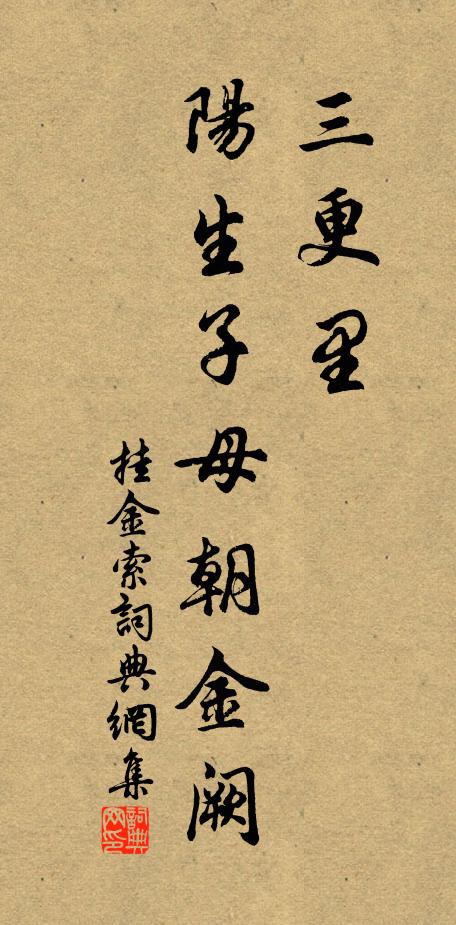 三更里
陽生子母朝金阙
挂金索詞典網集
詞典网印